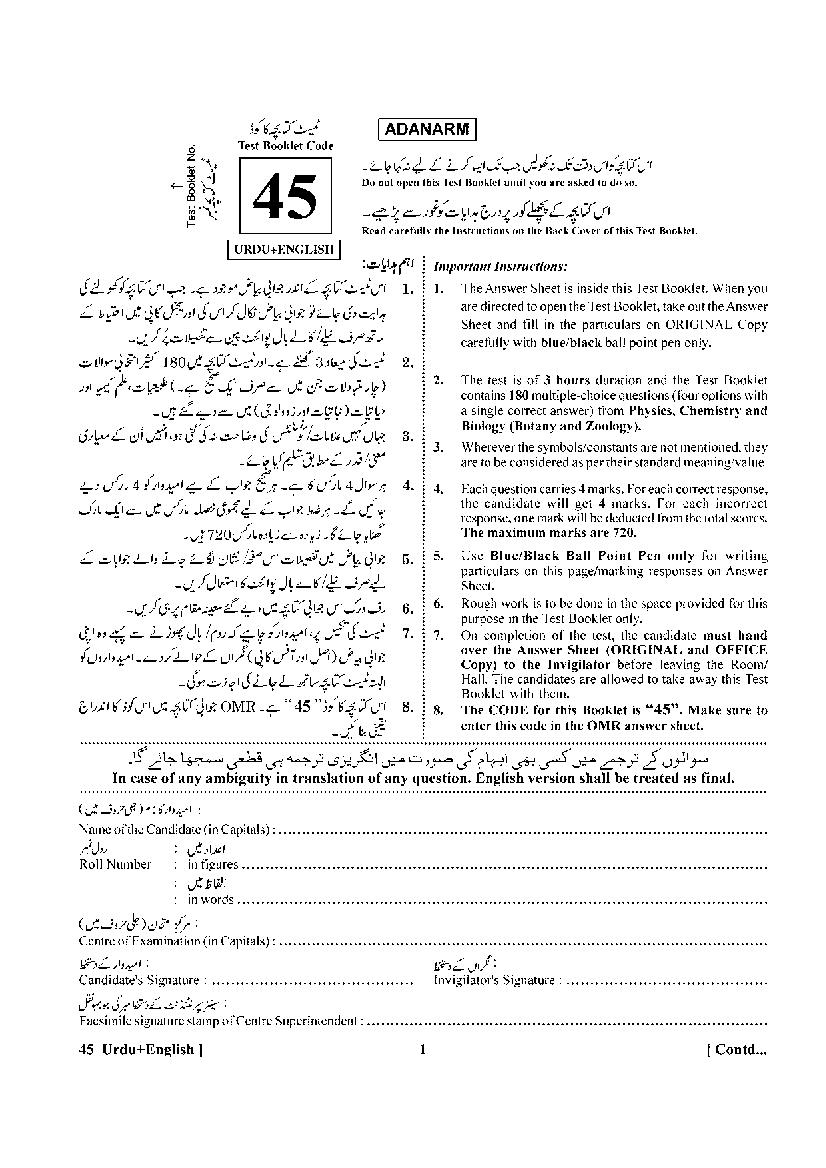 ٹیسٹ کتابچہ کا کوڈ
Test Booklet Code
ADANARM
Test Booklet No.
ٹیسٹ کتابچہ نمبر
45
URDU+ENGLISH
اس کتابچہ کو اس وقت تک نہ کھولیں جب تک ایسا کرنے کے لیے نہ کہا جائے۔
Do not open this Test Booklet until you are asked to do so.
اس کتابچہ کے پچھلے کور پر درج ہدایات کو غور سے پڑھیے۔
Read carefully the Instructions on the Back Cover of this Test Booklet.
اہم ہدایات:
1. اس ٹیسٹ کتابچہ کے اندر جوابی بیاض موجود ہے۔ جب اس کتابچہ کو کھولنے کی
ہدایت دی جائے تو جوابی بیاض نکال کر اس کی اوریجنل کاپی میں احتیاط کے
ساتھ صرف نیلے/کالے بال پوائنٹ پین سے تفصیلات پُر کریں۔
2. ٹیسٹ کی میعاد 3 گھنٹے ہے۔ اور ٹیسٹ کتابچہ میں 180 کثیر انتخابی سوالات
(چار متبادلات جن میں سے صرف ایک صحیح ہے۔) طبیعیات، علم کیمیا اور
حیاتیات (نباتیات اور زوولوجی) میں سے دیے گئے ہیں۔
3. جہاں کہیں علامات/کونسٹنٹس کی وضاحت نہ کی گئی ہو، انہیں اُن کے معیاری
معنی/قدر کے مطابق تسلیم کیا جائے۔
4. ہر سوال 4 مارکس کا ہے۔ ہر صحیح جواب کے لیے امیدوار کو 4 مارکس دیے
جائیں گے۔ ہر غلط جواب کے لیے مجموعی حاصلہ مارکس میں سے ایک مارک
گھٹایا جائے گا۔ زیادہ سے زیادہ مارکس 720 ہیں۔
5. جوابی بیاض میں تفصیلات اس صفحہ/نشان لگائے جانے والے جوابات کے
لیے صرف نیلے/کالے بال پوائنٹ کا استعمال کریں۔
6. رف ورک اس جوابی کتابچہ میں دیے گئے معینہ مقام پر ہی کریں۔
7. ٹیسٹ کی تکمیل پر، امیدوار کو چاہیے کہ روم/ہال چھوڑنے سے پہلے وہ اپنی
جوابی بیاض (اصل اور آفس کاپی) نگراں کے حوالے کردے۔ امیدواروں کو
البتہ ٹیسٹ کتابچہ ساتھ لے جانے کی اجازت ہوگی۔
8. اس کتابچہ کا کوڈ “45” ہے۔ OMR جوابی کتابچہ میں اس کوڈ کا اندراج
یقینی بنائیں۔
Important Instructions:
1. The Answer Sheet is inside this Test Booklet. When you
are directed to open the Test Booklet, take out the Answer
Sheet and fill in the particulars on ORIGINAL Copy
carefully with blue/black ball point pen only.
2. The test is of 3 hours duration and the Test Booklet
contains 180 multiple-choice questions (four options with
a single correct answer) from Physics, Chemistry and
Biology (Botany and Zoology).
3. Wherever the symbols/constants are not mentioned, they
are to be considered as per their standard meaning/value.
4. Each question carries 4 marks. For each correct response,
the candidate will get 4 marks. For each incorrect
response, one mark will be deducted from the total scores.
The maximum marks are 720.
5. Use Blue/Black Ball Point Pen only for writing
particulars on this page/marking responses on Answer
Sheet.
6. Rough work is to be done in the space provided for this
purpose in the Test Booklet only.
7. On completion of the test, the candidate must hand
over the Answer Sheet (ORIGINAL and OFFICE
Copy) to the Invigilator before leaving the Room/
Hall. The candidates are allowed to take away this Test
Booklet with them.
8. The CODE for this Booklet is “45”. Make sure to
enter this code in the OMR answer sheet.
سوالوں کے ترجمے میں کسی بھی ابہام کی صورت میں انگریزی ترجمہ ہی قطعی سمجھا جائے گا۔
In case of any ambiguity in translation of any question, English version shall be treated as final.
امیدوار کا نام (جلی حروف میں) :
Name of the Candidate (in Capitals) :
رول نمبر : اعداد میں
Roll Number : in figures
: الفاظ میں
: in words
مرکز امتحان (جلی حروف میں) :
Centre of Examination (in Capitals) :
امیدوار کے دستخط : نگراں کے دستخط :
Candidate's Signature : Invigilator's Signature :
سینٹر سپرنٹنڈنٹ کے دستخط مہر کی ہو بہو نقل :
Facsimile signature stamp of Centre Superintendent :
45 Urdu+English ] 1 [ Contd...